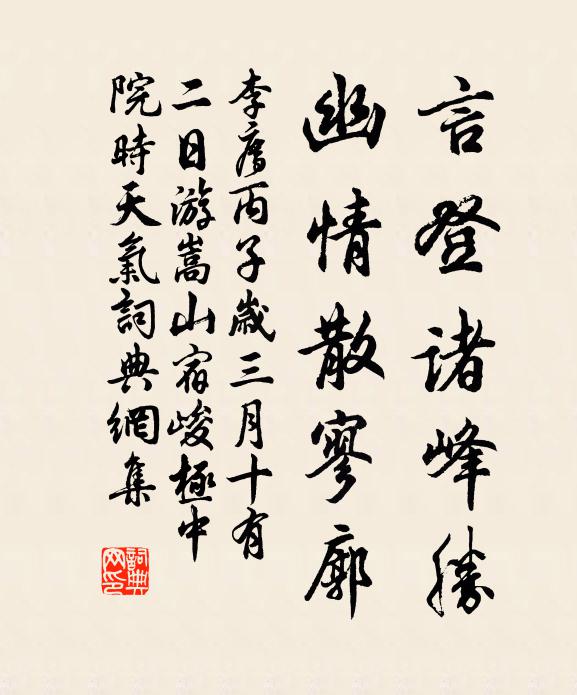 言登诸峰勝
幽情散寥廓
李廌丙子歲三月十有
二日游嵩山宿峻極中
院時天氣詞典網集
詞典网印